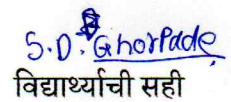 S.D. Ghorpade
विद्यार्थ्याची सही